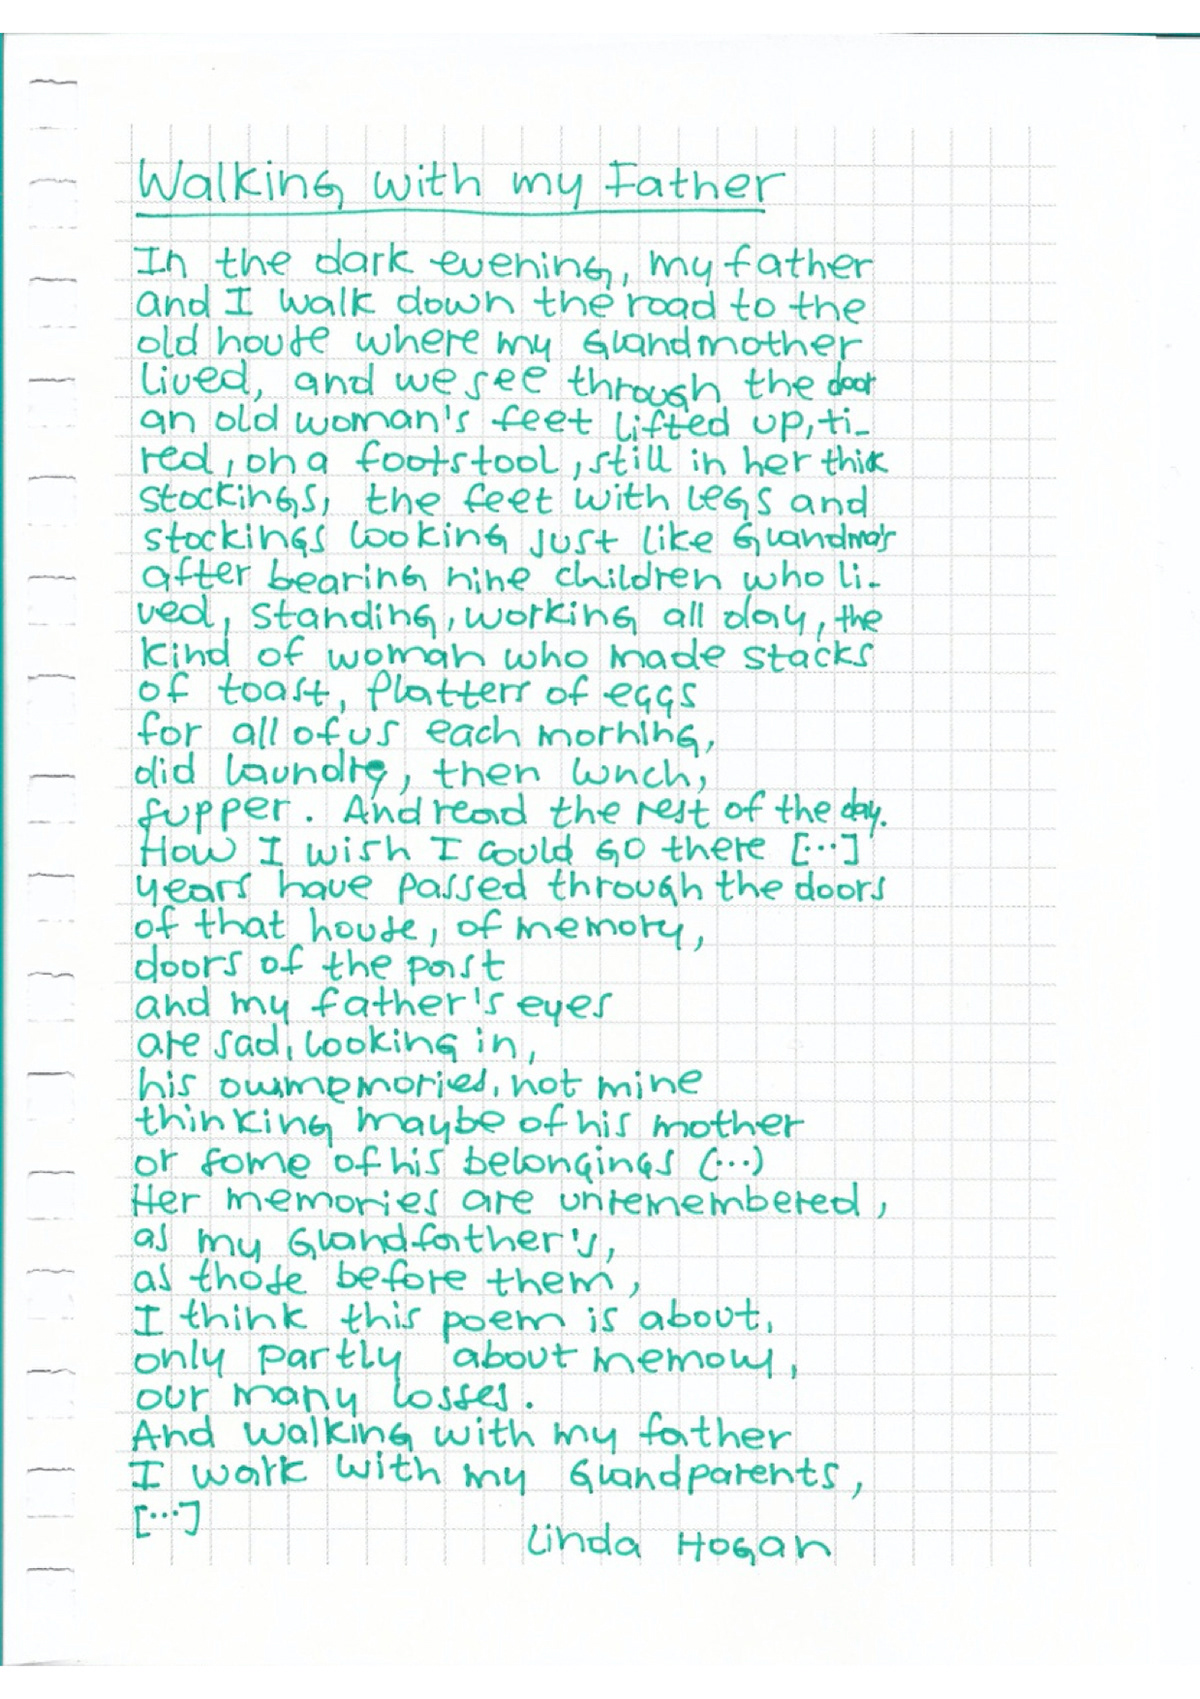 Walking with my Father
In the dark evening, my father
and I walk down the road to the
old house where my Grandmother
lived, and we see through the door
an old woman's feet lifted up, ti-
red, on a footstool, still in her thick
stockings, the feet with legs and
stockings looking just like Grandma's
after bearing nine children who li-
ved, standing, working all day, the
kind of woman who made stacks
of toast, platters of eggs
for all of us each morning,
did laundry, then lunch,
supper. And read the rest of the day.
How I wish I could go there [...]
years have passed through the doors
of that house, of memory,
doors of the past
and my father's eyes
are sad, looking in,
his own memories, not mine
thinking maybe of his mother
or some of his belongings (...)
Her memories are unremembered,
as my Grandfather's,
as those before them,
I think this poem is about,
only partly about memory,
our many losses.
And walking with my father
I walk with my Grandparents,
[...]
Linda Hogan